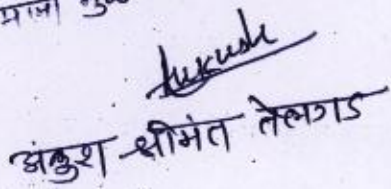 माझा
Ankush
अंकुश श्रीमंत तेलगड